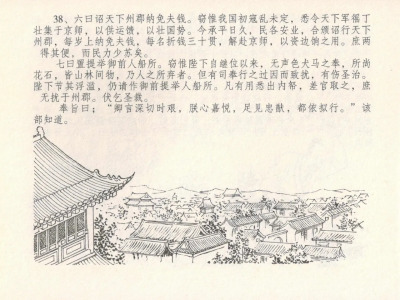 38、六曰诏天下州郡纳免夫钱。窃惟我国初寇乱未定，悉令天下军徭丁
壮集于京师，以供运馈，以壮国势。今承平日久，民各安业，合颁诏行天下
州郡，每岁上纳免夫钱，每名折钱三十贯，解赴京师，以资边饷之用。庶两
得其便，而民力少苏矣。
七曰置提举御前人船所。窃惟陛下自继位以来，无声色犬马之奉，所尚
花石，皆山林间物，乃人之所弃者。但有司奉行之过因而致扰，有伤圣治。
陛下节其浮滥，仍请作御前提举人船所。凡有用悉出内帑，差官取之，庶
无扰于州郡。伏乞圣裁。
奉旨曰：“卿言深切时艰，朕心嘉悦，足见忠猷，都依拟行。”该
部知道。